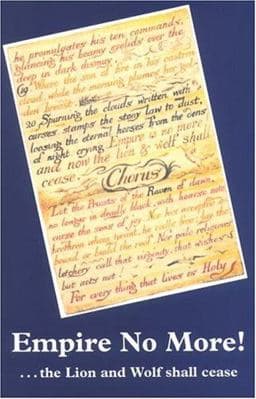 he promulgates his ten commands,
glancing his beamy eyelids over the
deep in dark dismay
19 Where the son of fire in his eastern
cloud, while the morning plumes her gol-
den breast
20 Spurning the clouds written with
curses stamps the stony law to dust,
loosing the eternal horses from the dens
of night crying Empire is no more!
and now the lion & wolf shall
cease
Chorus
Let the Priests of the Raven of dawn,
no longer in deadly black, with hoarse note
curse the sons of joy. Nor his accepted
brethren whom, tyrant, he calls free: lay the
bound or build the roof. Nor pale religious
letchery call that virginity, that wishes
but acts not
For every thing that lives is Holy
Empire No More!
...the Lion and Wolf shall cease